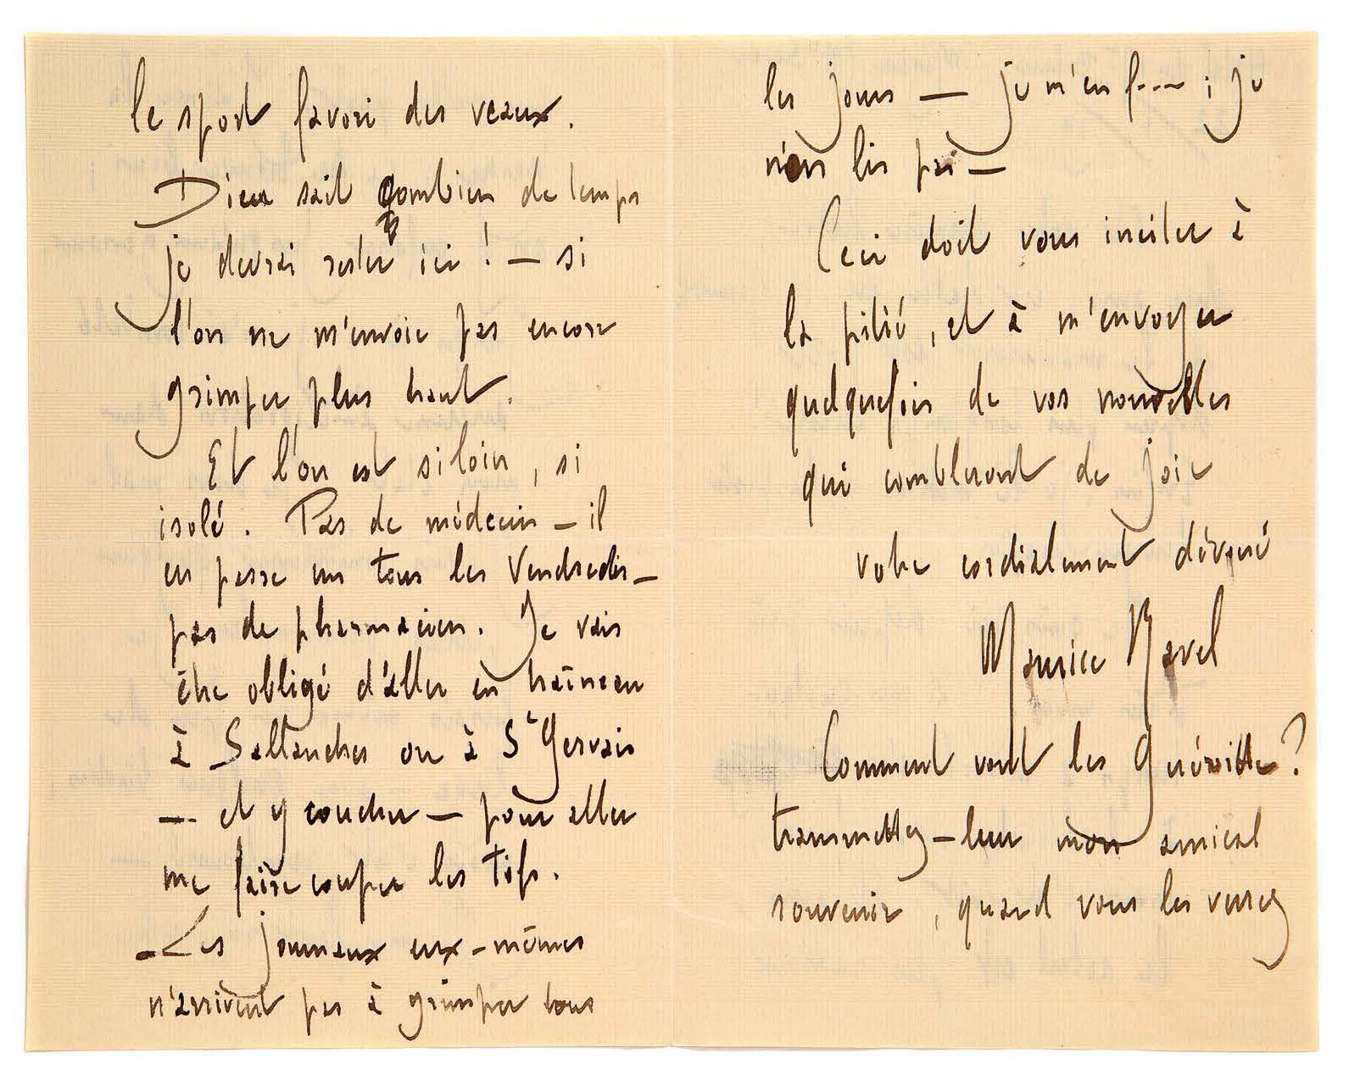 le sport favori des veaux.
Dieu sait combien de temps
je devrai rester ici ! — si
l'on ne m'envoie pas encore
grimper plus haut.
Et l'on est si loin, si
isolé. Pas de médecin — il
en passe un tous les Vendredis —
pas de pharmacien. Je vais
être obligé d'aller en traîneau
à Sallanches ou à St Gervais
— et y coucher — pour aller
me faire couper les tifs.
— Les journaux eux-mêmes
n'arrivent pas à grimper tous
les jours — je m'en f--- ; je
n'en lis pas —
Ceci doit vous inciter à
la pitié, et à m'envoyer
quelquefois de vos nouvelles
qui combleront de joie
votre cordialement dévoué
Maurice Ravel
Comment vont les Guéritte ?
transmettez-leur mon amical
souvenir, quand vous les verrez